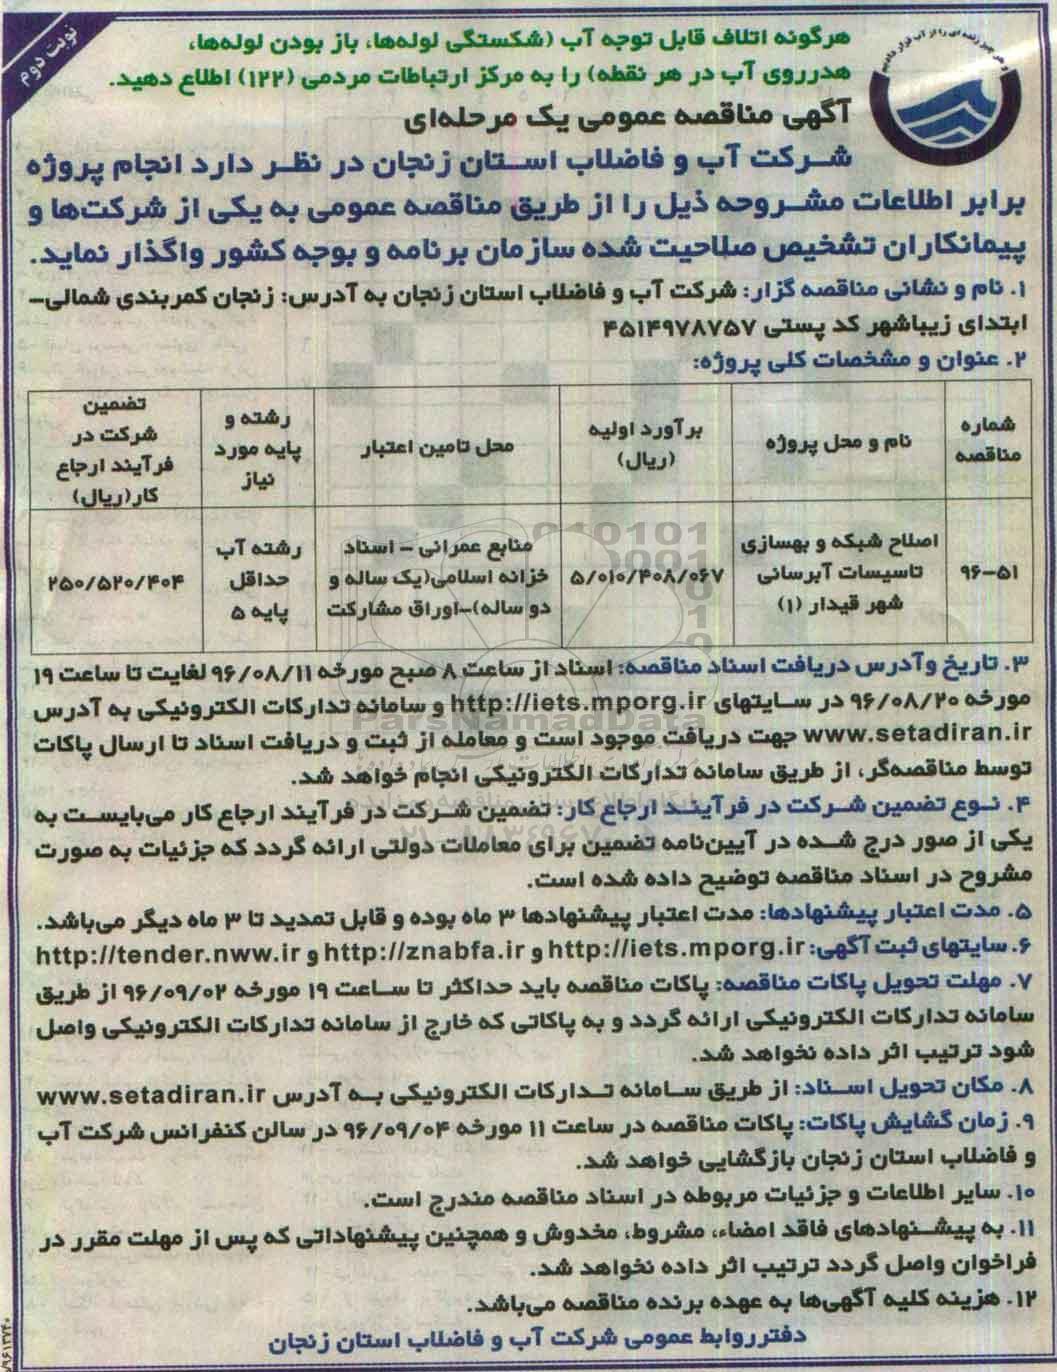 نوبت دوم
هرگونه اتلاف قابل توجه آب (شکستگی لوله‌ها، باز بودن لوله‌ها،
هدرروی آب در هر نقطه) را به مرکز ارتباطات مردمی (۱۲۲) اطلاع دهید.
آگهی مناقصه عمومی یک مرحله‌ای
شرکت آب و فاضلاب استان زنجان در نظر دارد انجام پروژه
برابر اطلاعات مشروحه ذیل را از طریق مناقصه عمومی به یکی از شرکت‌ها و
پیمانکاران تشخیص صلاحیت شده سازمان برنامه و بودجه کشور واگذار نماید.
۱. نام و نشانی مناقصه گزار: شرکت آب و فاضلاب استان زنجان به آدرس: زنجان کمربندی شمالی–
ابتدای زیباشهر کد پستی ۴۵۱۴۹۷۸۷۵۷
۲. عنوان و مشخصات کلی پروژه:
شماره مناقصه
نام و محل پروژه
برآورد اولیه (ریال)
محل تامین اعتبار
رشته و پایه مورد نیاز
تضمین شرکت در فرآیند ارجاع کار(ریال)
۹۶–۵۱
اصلاح شبکه و بهسازی
تاسیسات آبرسانی
شهر قیدار (۱)
۵/۰۱۰/۴۰۸/۰۶۷
منابع عمرانی – اسناد
خزانه اسلامی(یک ساله و
دو ساله)–اوراق مشارکت
رشته آب
حداقل
پایه ۵
۲۵۰/۵۲۰/۴۰۴
۳. تاریخ وآدرس دریافت اسناد مناقصه: اسناد از ساعت ۸ صبح مورخه ۹۶/۰۸/۱۱ لغایت تا ساعت ۱۹
مورخه ۹۶/۰۸/۲۰ در سایتهای http://iets.mporg.ir و سامانه تدارکات الکترونیکی به آدرس
www.setadiran.ir جهت دریافت موجود است و معامله از ثبت و دریافت اسناد تا ارسال پاکات
توسط مناقصه‌گر، از طریق سامانه تدارکات الکترونیکی انجام خواهد شد.
۴. نوع تضمین شرکت در فرآیند ارجاع کار: تضمین شرکت در فرآیند ارجاع کار می‌بایست به
یکی از صور درج شده در آیین‌نامه تضمین برای معاملات دولتی ارائه گردد که جزئیات به صورت
مشروح در اسناد مناقصه توضیح داده شده است.
۵. مدت اعتبار پیشنهادها: مدت اعتبار پیشنهادها ۳ ماه بوده و قابل تمدید تا ۳ ماه دیگر می‌باشد.
۶. سایتهای ثبت آگهی: http://iets.mporg.ir و http://znabfa.ir و http://tender.nww.ir
۷. مهلت تحویل پاکات مناقصه: پاکات مناقصه باید حداکثر تا ساعت ۱۹ مورخه ۹۶/۰۹/۰۲ از طریق
سامانه تدارکات الکترونیکی ارائه گردد و به پاکاتی که خارج از سامانه تدارکات الکترونیکی واصل
شود ترتیب اثر داده نخواهد شد.
۸. مکان تحویل اسناد: از طریق سامانه تدارکات الکترونیکی به آدرس www.setadiran.ir
۹. زمان گشایش پاکات: پاکات مناقصه در ساعت ۱۱ مورخه ۹۶/۰۹/۰۴ در سالن کنفرانس شرکت آب
و فاضلاب استان زنجان بازگشایی خواهد شد.
۱۰. سایر اطلاعات و جزئیات مربوطه در اسناد مناقصه مندرج است.
۱۱. به پیشنهادهای فاقد امضاء، مشروط، مخدوش و همچنین پیشنهاداتی که پس از مهلت مقرر در
فراخوان واصل گردد ترتیب اثر داده نخواهد شد.
۱۲. هزینه کلیه آگهی‌ها به عهده برنده مناقصه می‌باشد.
دفترروابط عمومی شرکت آب و فاضلاب استان زنجان
ParsNamadData